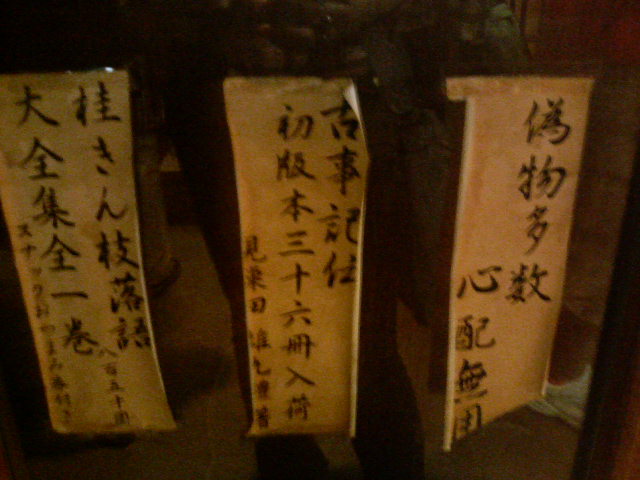 偽物多数
心配無用
古事記伝
初版本三十六冊入荷
桂きん枝落語
大全集全一巻
八百五十円
スナックおつまみ券付き